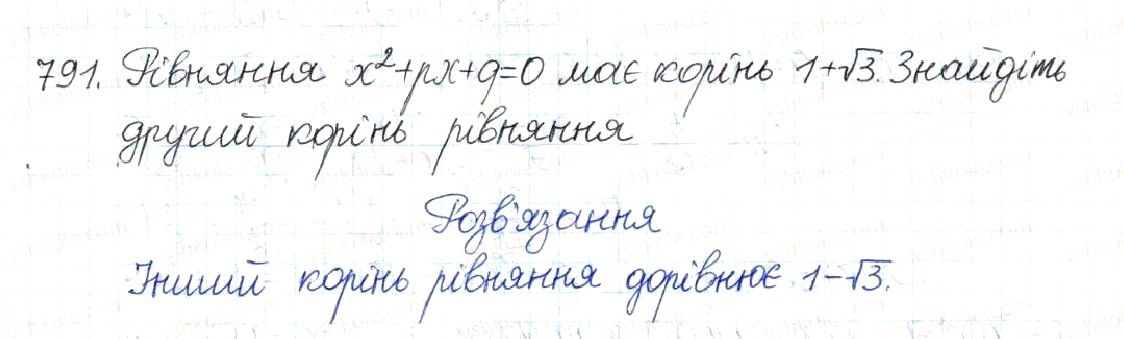 791. Рівняння x²+px+q=0 має корінь 1+√3. Знайдіть
другий корінь рівняння
Розв'язання
Інший корінь рівняння дорівнює 1-√3.